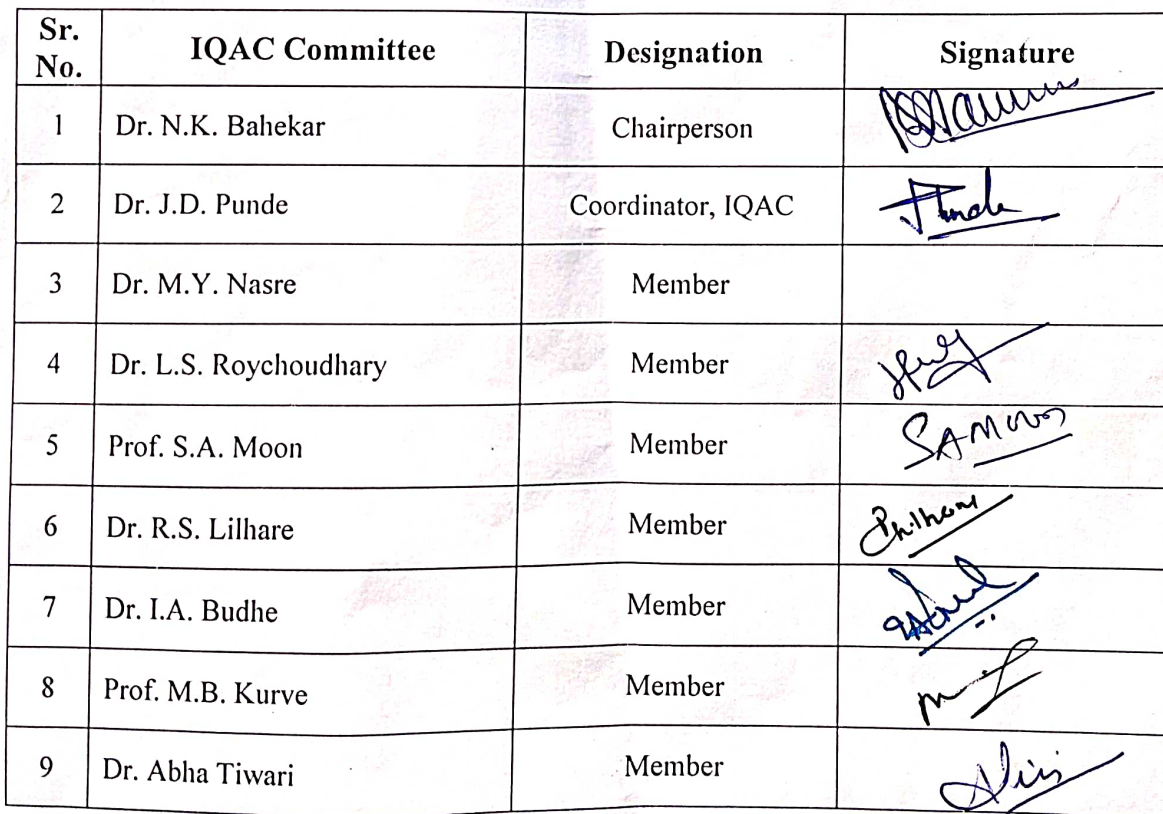 Sr. No. IQAC Committee Designation Signature
1 Dr. N.K. Bahekar Chairperson
2 Dr. J.D. Punde Coordinator, IQAC
3 Dr. M.Y. Nasre Member
4 Dr. L.S. Roychoudhary Member
5 Prof. S.A. Moon Member SAMoon
6 Dr. R.S. Lilhare Member
7 Dr. I.A. Budhe Member
8 Prof. M.B. Kurve Member
9 Dr. Abha Tiwari Member